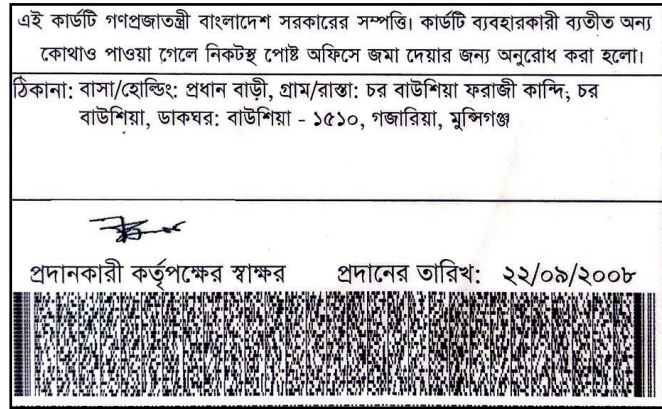 এই কার্ডটি গণপ্রজাতন্ত্রী বাংলাদেশ সরকারের সম্পত্তি। কার্ডটি ব্যবহারকারী ব্যতীত অন্য
কোথাও পাওয়া গেলে নিকটস্থ পোষ্ট অফিসে জমা দেয়ার জন্য অনুরোধ করা হলো।
ঠিকানা: বাসা/হোল্ডিং: প্রধান বাড়ী, গ্রাম/রাস্তা: চর বাউশিয়া ফরাজী কান্দি, চর
বাউশিয়া, ডাকঘর: বাউশিয়া - ১৫১০, গজারিয়া, মুন্সিগঞ্জ
প্রদানকারী কর্তৃপক্ষের স্বাক্ষর প্রদানের তারিখ: ২২/০৯/২০০৮